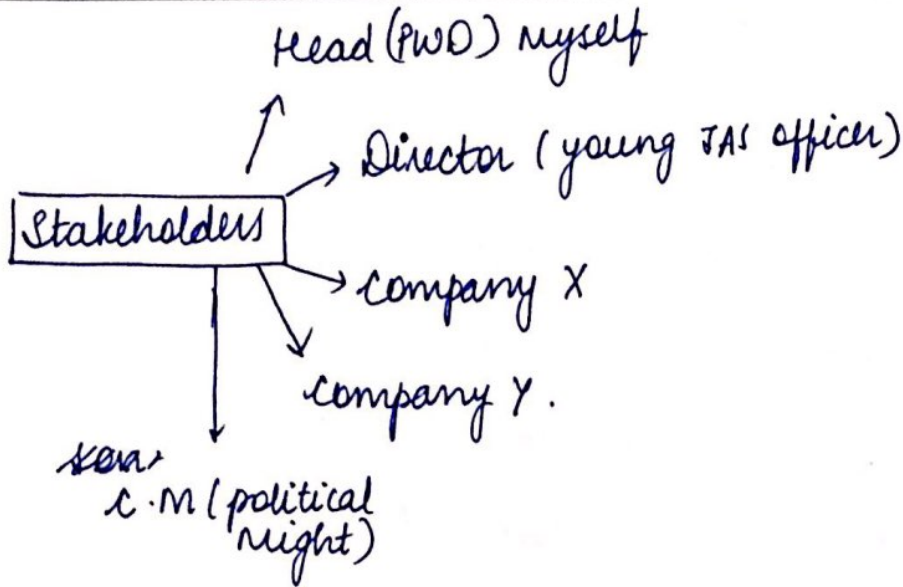 Head (PWD) Myself
Director (young IAS officer)
Stakeholders
Company X
Company Y.
C.M (political
Might)